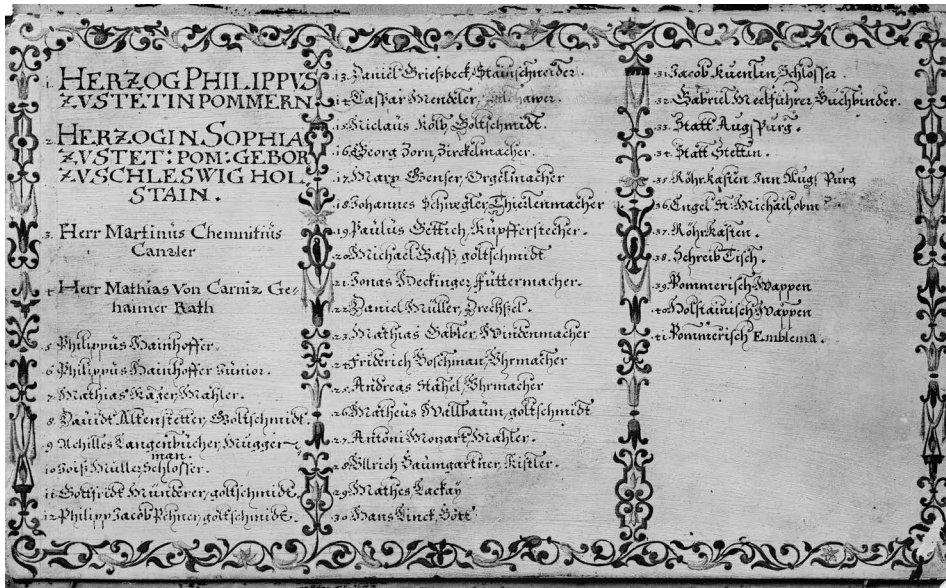 1. HERZOG PHILIPPVS
ZV STETIN POMMERN.
2. HERZOGIN SOPHIA
ZV STET: POM: GEBOR
ZV SCHLESWIG HOL
STAIN.
3. Herr Martinus Chemnitius
Canzler
4. Herr Mathias von Carniz Ge-
haimer Rath
5. Philippus Hainhoffer.
6. Philippus Hainhoffer Junior.
7. Mathias Kager, Mahler.
8. Dauidt Altenstetter, Goltschmidt.
9. Achilles Langenbucher,
man.
10. Müller, Schlosser.
11. Gottfridt Münderer, goltschmidt.
12. Philipp Jacob goltschmidt.
13. Daniel Grießbeck, Stainschneider.
14. Caspar Mendeler,
15. Niclaus Kolb, Goltschmidt.
16. Georg Zorn, Zirckelmacher.
17. Marx Orgelmacher
18. Johannes Schwegler,
19. Paulus Göttich, Kupfferstecher.
20. Michael Gass, goltschmidt
21. Jonas Füttermacher.
22. Daniel Müller,
23. Mathias Gabler, Windenmacher
24. Friderich Vhrmacher
25. Andreas Stahel, Vhrmacher
26. Matheus Wallbaum, goltschmidt
27. Antoni Mozart, Mahler.
28. Vllrich Baumgartner, Kistler.
29. Mathes Lackay
30. Hans
31. Jacob Kuentin, Schlosser.
32. Gabriel Buchbinder.
33. Statt Augspurg.
34. Statt Stettin.
35. Röhrkasten Inn Augspurg
36. Engel St. Michael,
37. Röhrkasten.
38. Schreib Tisch.
39. Pommerisch Wappen
40. Holstainisch Wappen
41. Pommerisch Emblema.